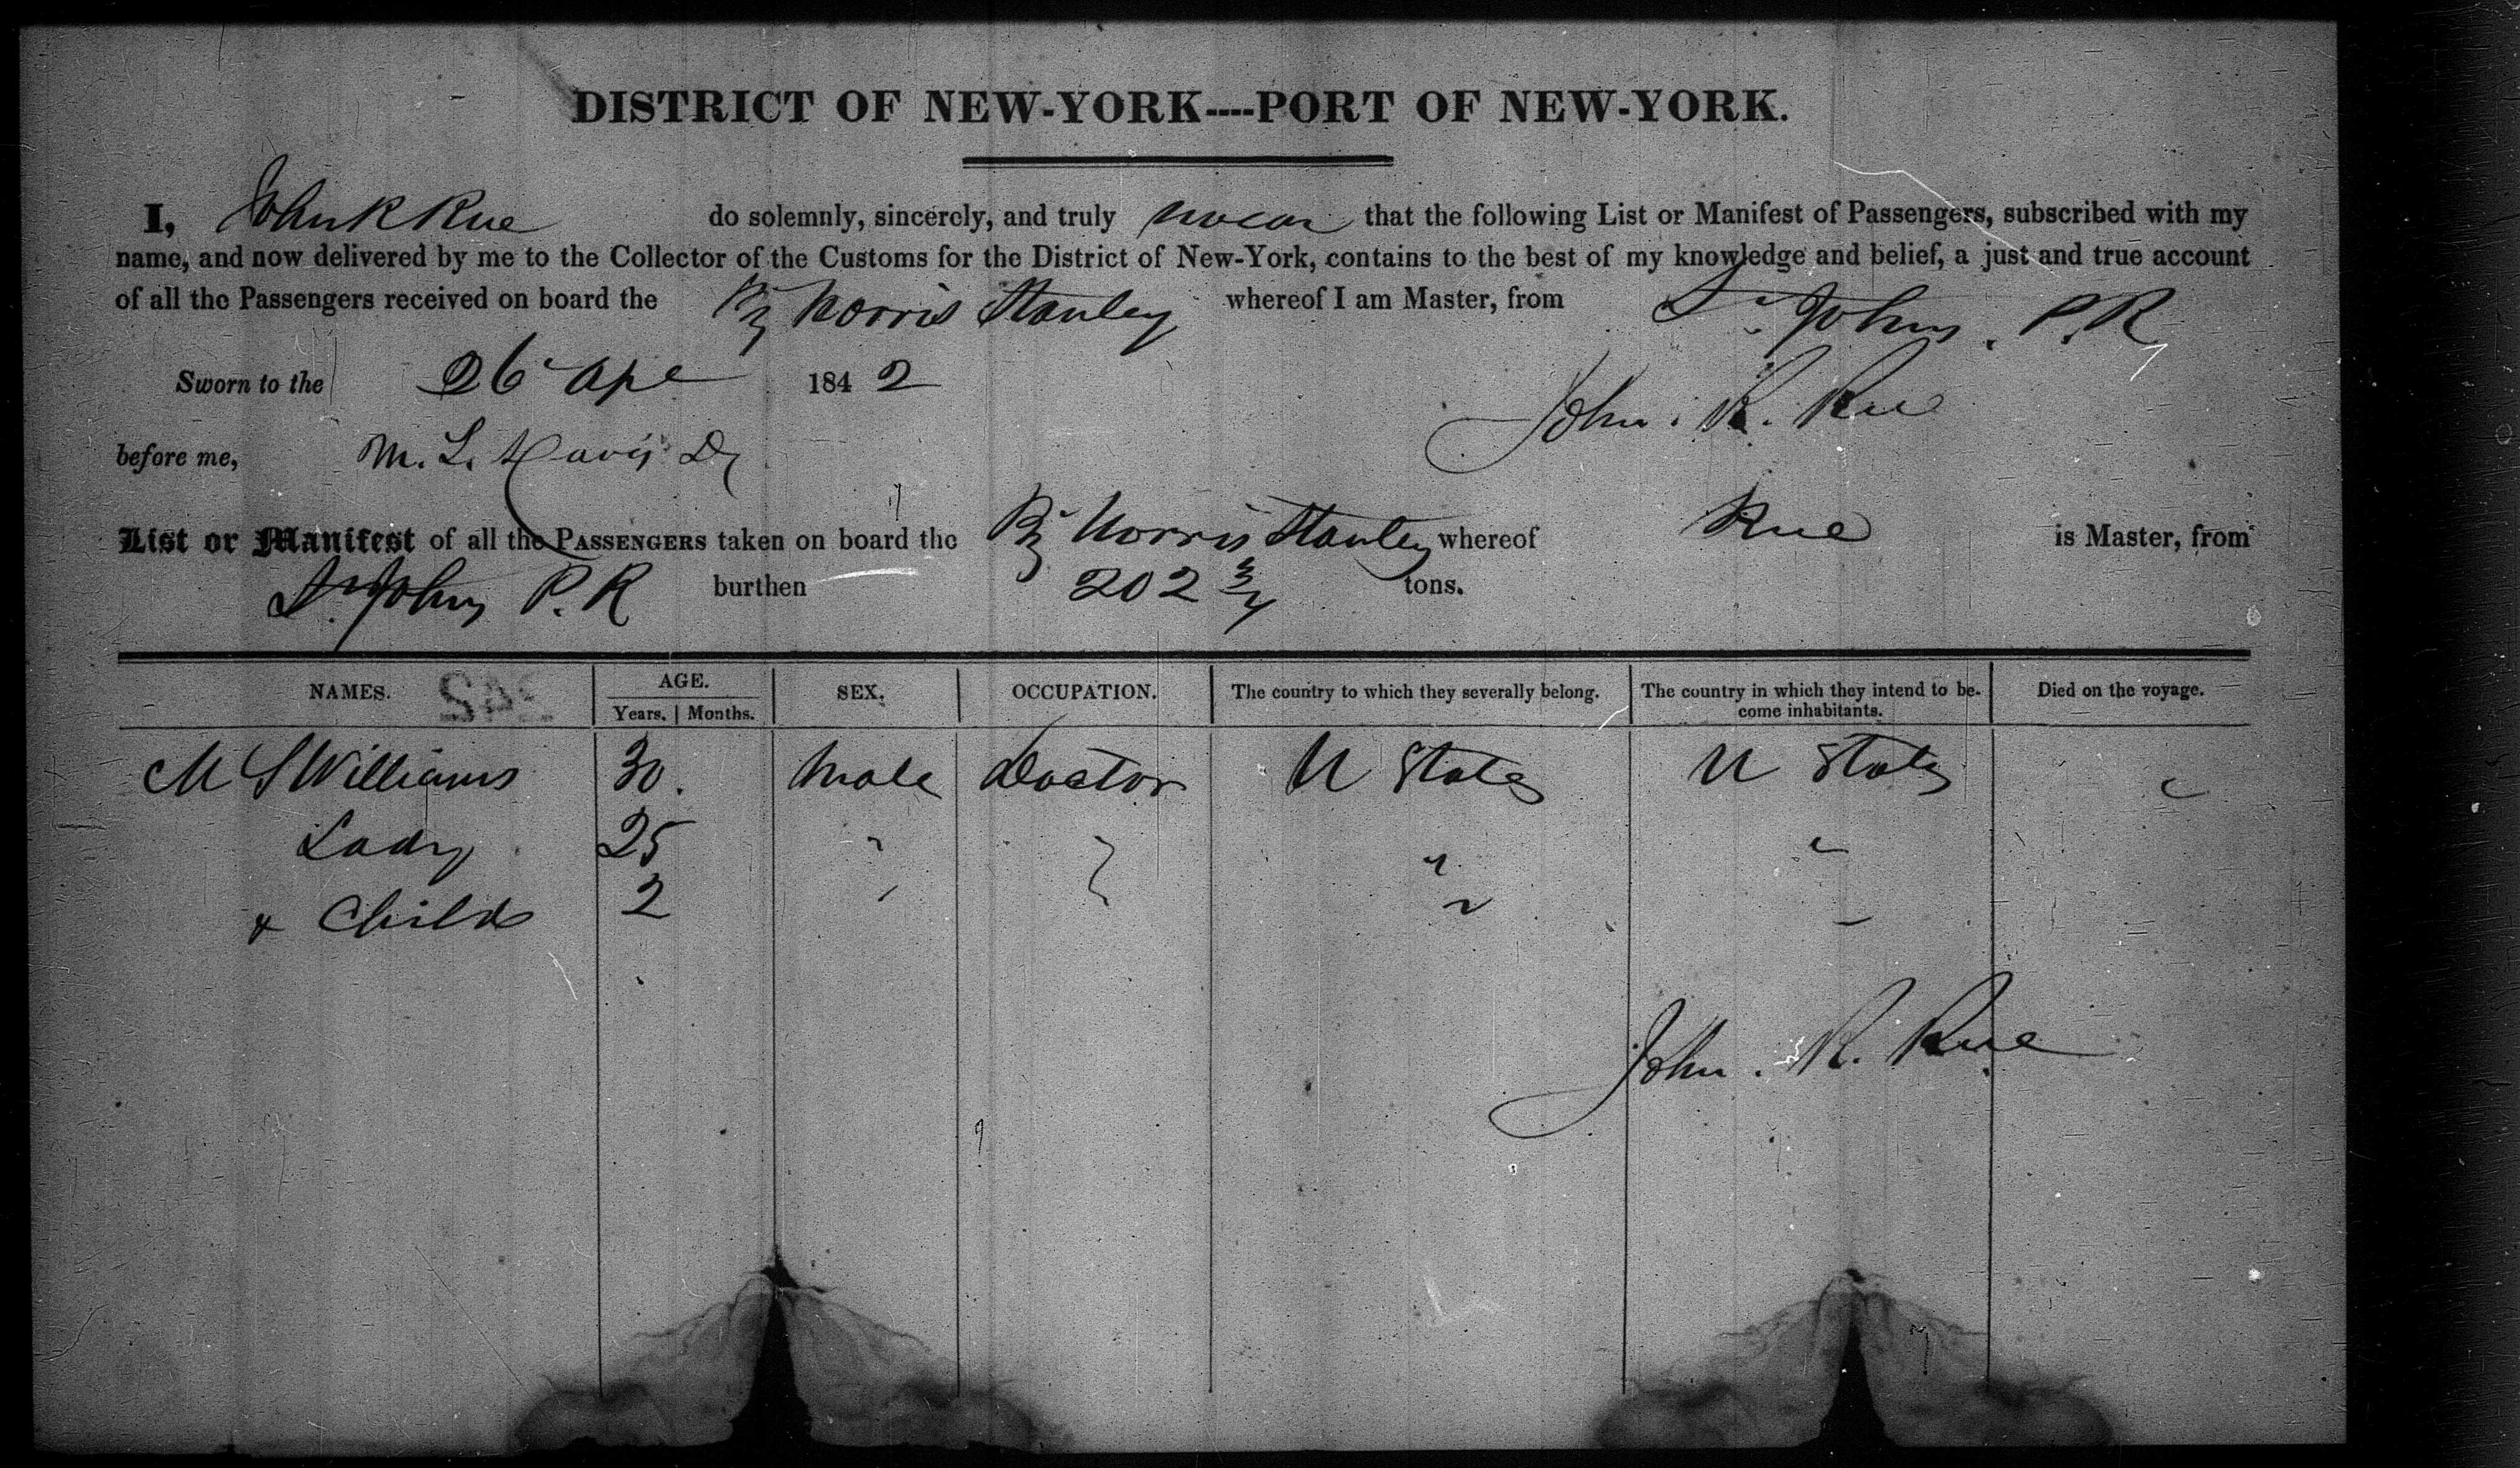 DISTRICT OF NEW-YORK----PORT OF NEW-YORK.
I, John R Rue do solemnly, sincerely, and truly swear that the following List or Manifest of Passengers, subscribed with my
name, and now delivered by me to the Collector of the Customs for the District of New-York, contains to the best of my knowledge and belief, a just and true account
of all the Passengers received on board the Bg Norris Stanley whereof I am Master, from St. Johns. P.R
Sworn to the 26 Apl 1842
John. R. Rue
before me, M. L. Davis
List or Manifest of all the PASSENGERS taken on board the Bg Norris Stanley whereof Rue is Master, from
St. Johns P. R burthen 202 3/4 tons.
NAMES. AGE. Years. Months. SEX. OCCUPATION. The country to which they severally belong. The country in which they intend to become inhabitants. Died on the voyage.
242
M S Williams 30. Male Doctor U States U States
Lady 25 " " "
& Child 2 " "
John. R. Rue